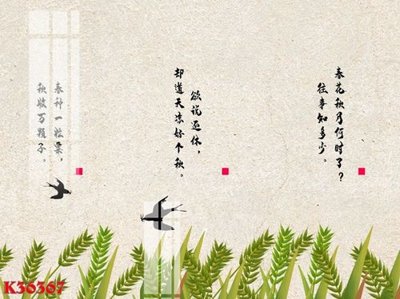 春花秋月何时了？
往事知多少。
欲说还休，
却道天凉好个秋。
春种一粒粟，
秋收万颗子。
K30367